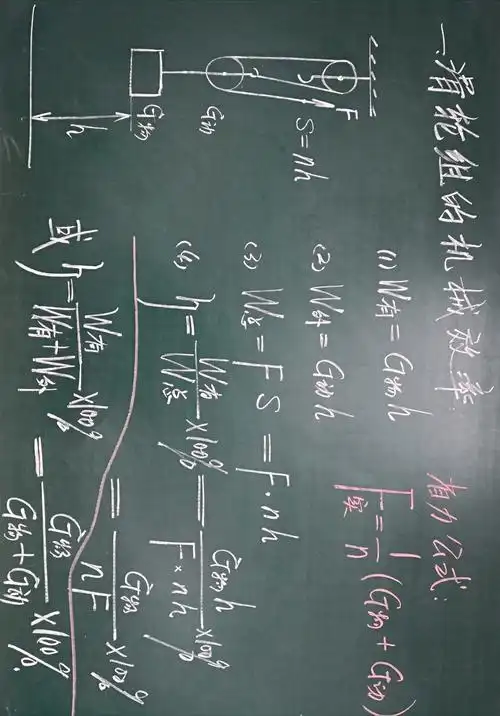 一.滑轮组的机械效率:
F
S=nh
G动
G物
h
(1) W有=G物h
(2) W外=G动h
(3) W总=FS=F·nh
(4) η=W有/W总×100%=G物h/F×nh×100%
=G物/nF×100%
或 η=W有/W有+W外×100%=G物/G物+G动×100%.
省力公式:
F实=1/n(G物+G动)